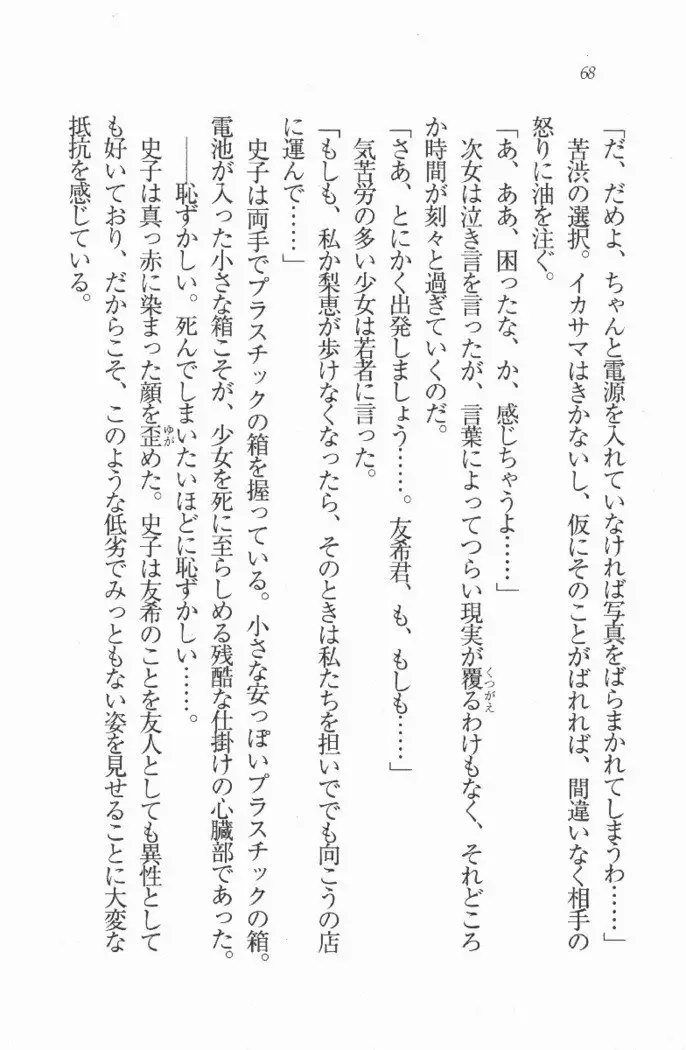 68
「だ、だめよ、ちゃんと電源を入れていなければ写真をばらまかれてしまうわ……」
苦渋の選択。イカサマはきかないし、仮にそのことがばれれば、間違いなく相手の
怒りに油を注ぐ。
「あ、ああ、困ったな、か、感じちゃうよ……」
次女は泣き言を言ったが、言葉によってつらい現実が覆くつがえるわけもなく、それどころ
か時間が刻々と過ぎていくのだ。
「さあ、とにかく出発しましょう……。友希君、も、もしも……」
気苦労の多い少女は若者に言った。
「もしも、私か梨恵が歩けなくなったら、そのときは私たちを担いででも向こうの店
に運んで……」
史子は両手でプラスチックの箱を握っている。小さな安っぽいプラスチックの箱。
電池が入った小さな箱こそが、少女を死に至らしめる残酷な仕掛けの心臓部であった。
――恥ずかしい。死んでしまいたいほどに恥ずかしい……。
史子は真っ赤に染まった顔を歪ゆがめた。史子は友希のことを友人としても異性として
も好いており、だからこそ、このような低劣でみっともない姿を見せることに大変な
抵抗を感じている。